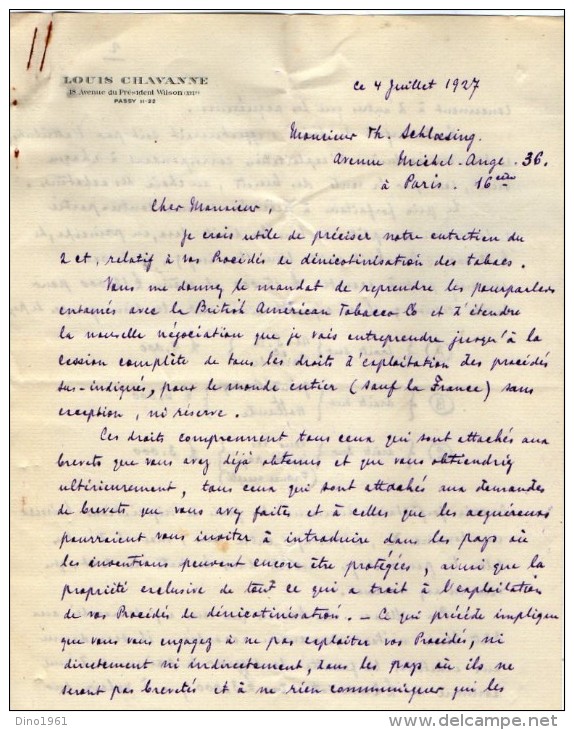 LOUIS CHAVANNE
18 Avenue du Président Wilson (XVIe)
PASSY 11-22
ce 4 Juillet 1927
Monsieur Th. Schloesing.
Avenue Michel-Ange. 36.
à Paris. 16ème
Cher Monsieur,
Je crois utile de préciser notre entretien du
2 ct, relatif à vos Procédés de dénicotinisation des tabacs.
Vous me donnez le mandat de reprendre les pourparlers
entamés avec la British American Tobacco Co et d'étendre
la nouvelle négociation que je vais entreprendre jusqu'à la
cession complète de tous les droits d'exploitation des procédés
sus-indiqués, pour le monde entier (sauf la France) sans
exception, ni réserve.
Ces droits comprennent tous ceux qui sont attachés aux
brevets que vous avez déjà obtenus et que vous obtiendriez
ultérieurement, tous ceux qui sont attachés aux demandes
de brevets que vous avez faites et à celles que les acquéreurs
pourraient vous inviter à introduire dans les pays où
les inventions peuvent encore être protégées, ainsi que la
propriété exclusive de tout ce qui a trait à l'exploitation
de vos Procédés de dénicotinisation. — Ce qui précède implique
que vous vous engagez à ne pas exploiter vos Procédés, ni
directement ni indirectement, dans les pays où ils ne
seront pas brevetés et à ne rien communiquer qui les
Dino1961